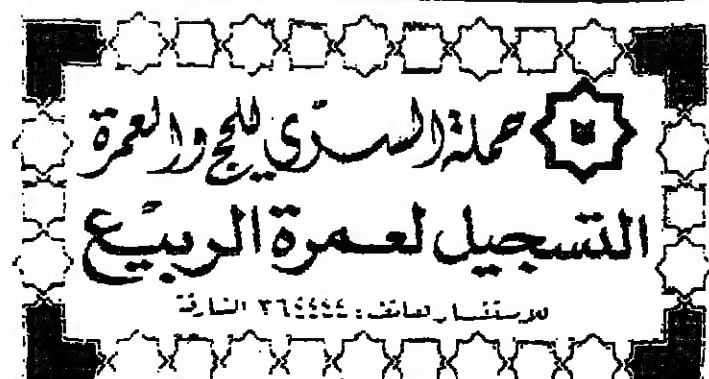 حملة السري للحج والعمرة
التسجيل لعمرة الربيع
للاستفسار هاتف: ٣٦٤٤٤٤ الشارقة